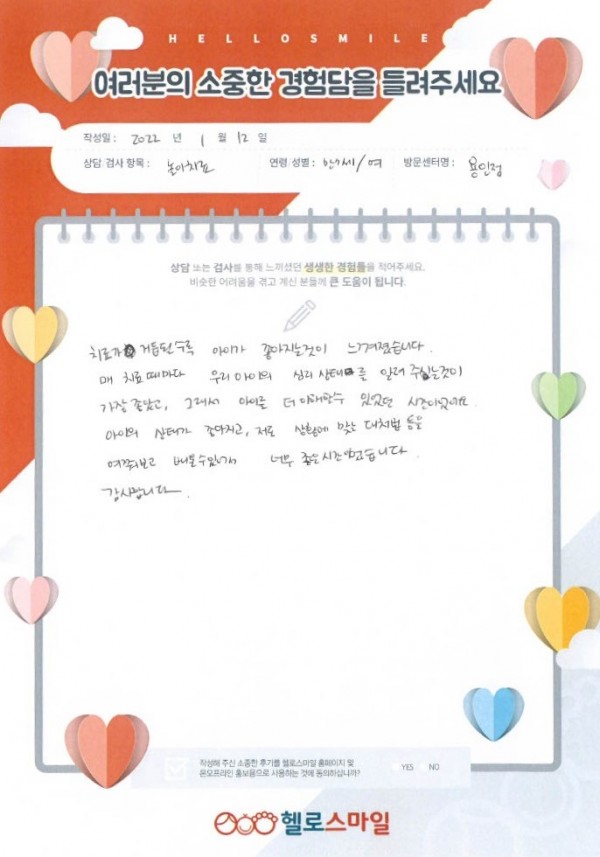 HELLOSMILE
여러분의 소중한 경험담을 들려주세요
작성일 : 2022 년 1 월 12 일
상담 검사 항목 : 놀이치료 연령 성별 : 만7세/여 방문센터명 : 용인점
상담 또는 검사를 통해 느끼셨던 생생한 경험들을 적어주세요.
비슷한 어려움을 겪고 계신 분들에 큰 도움이 됩니다.
치료가 거듭될수록 아이가 좋아지는것이 느껴졌습니다.
매 치료 때마다 우리 아이의 심리 상태를 알려 주시는것이
가장 좋았고, 그래서 아이를 더 이해할수 있었던 시간이었어요.
아이의 상태가 좋아지고, 저도 상황에 맞는 대처법 등을
여쭤보고 배울수있어서 너무 좋은시간이었습니다.
감사합니다.
작성해 주신 소중한 후기를 헬로스마일 홈페이지 및
온오프라인 홍보용으로 사용하는 것에 동의하십니까?
YES NO
헬로스마일